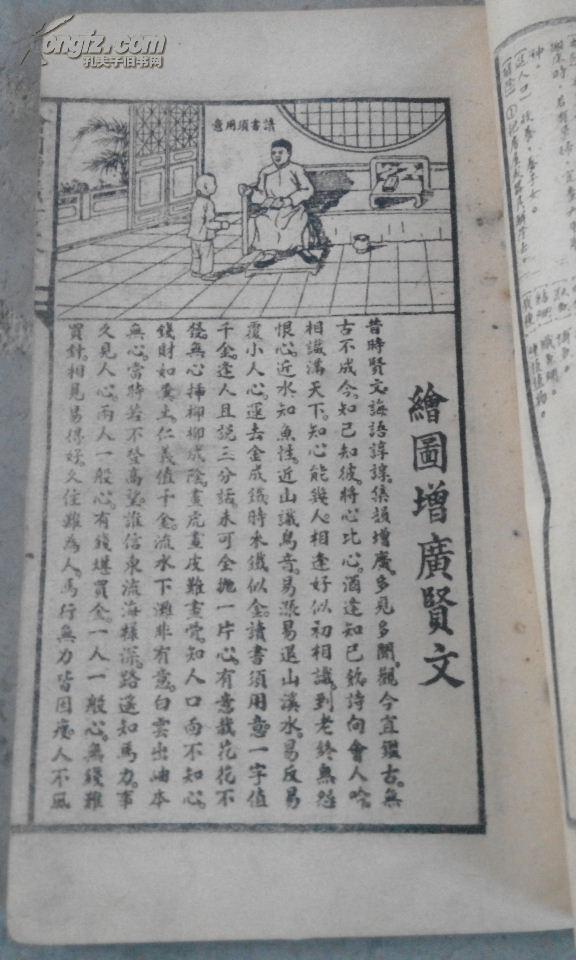 Kongfz.com
孔夫子旧书网
讀書須用意
繪圖增廣賢文
昔時賢文。誨語諄諄。集韻增廣。多見多聞。觀今宜鑑古。無
古不成今。知己知彼。將心比心。酒逢知己飲。詩向會人吟。
相識滿天下。知心能幾人。相逢好似初相識。到老終無怨
恨心。近水知魚性。近山識鳥音。易漲易退山溪水。易反易
覆小人心。運去金成鐵。時來鐵似金。讀書須用意。一字值
千金。逢人且說三分話。未可全拋一片心。有意栽花花不
發。無心插柳柳成陰。畫虎畫皮難畫骨。知人口面不知心。
錢財如糞土。仁義值千金。流水下灘非有意。白雲出岫本
無心。當時若不登高望。誰信東流海樣深。路遙知馬力。事
久見人心。兩人一般心。有錢堪買金。一人一般心。無錢難
買針。相見易得好。久住難為人。馬行無力皆因瘦。人不風